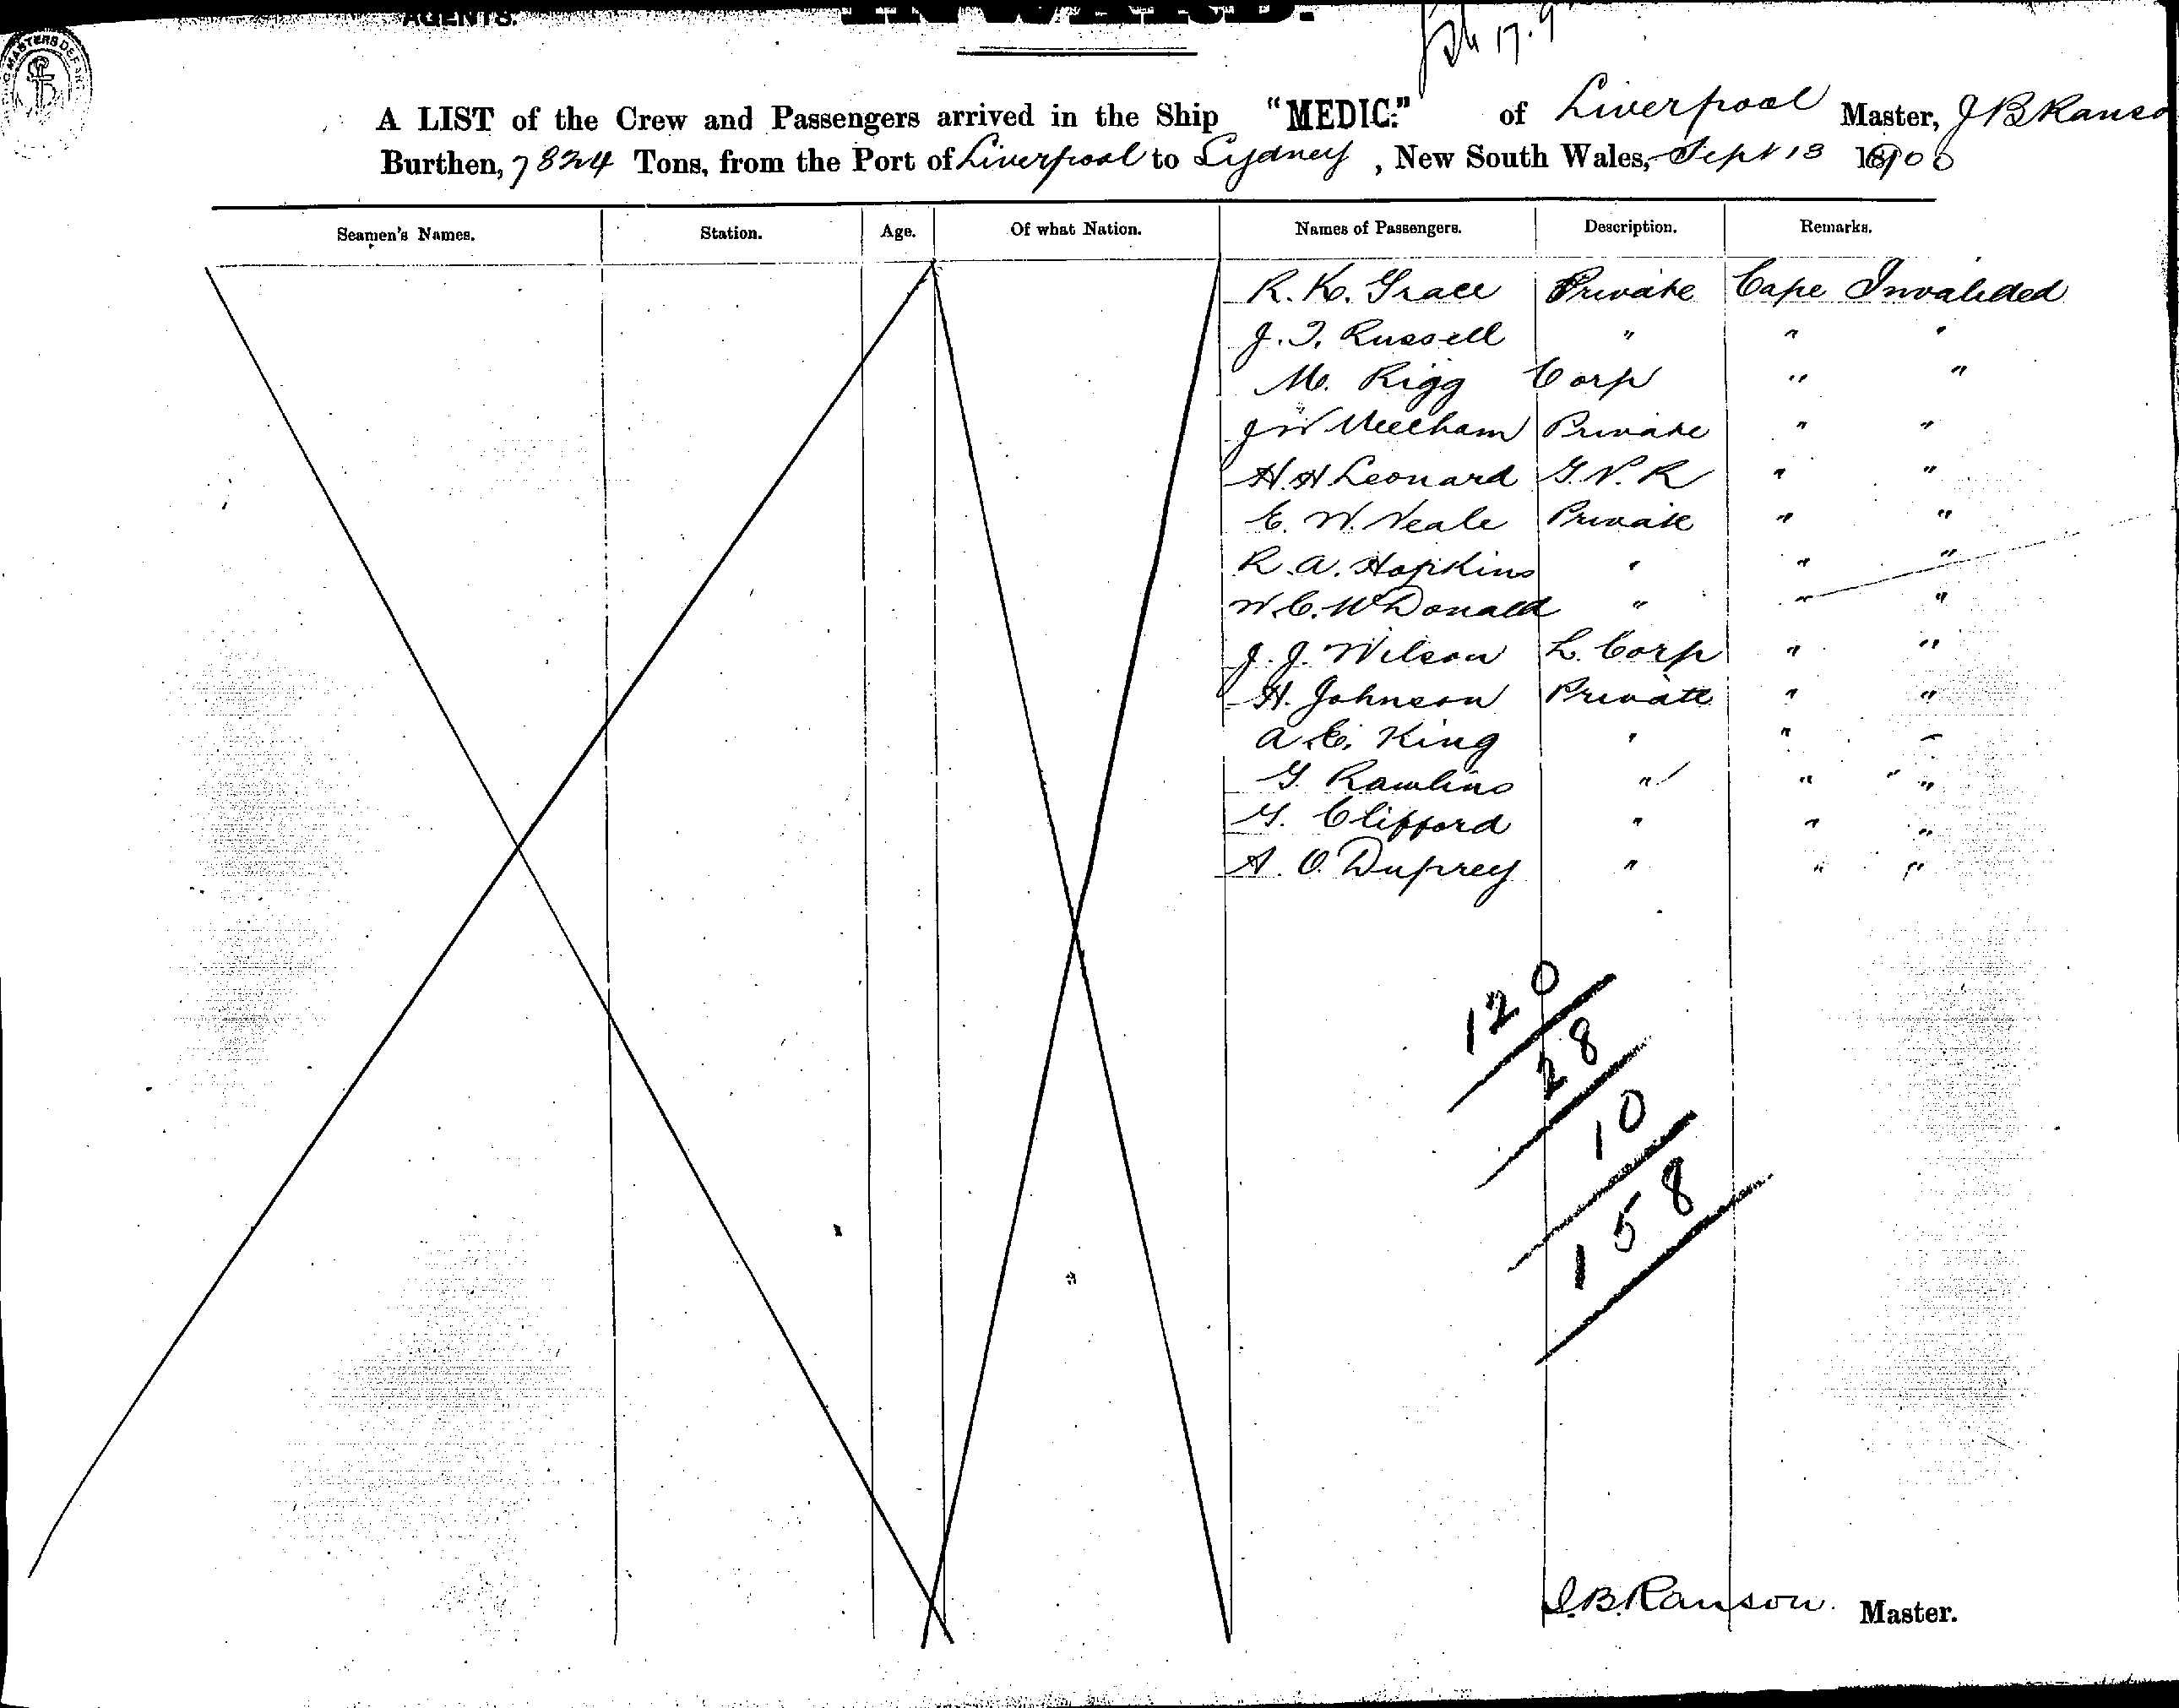 AGENTS.
INWARD.
17.9
A LIST of the Crew and Passengers arrived in the Ship "MEDIC." of Liverpool Master, J B Ranso
Burthen, 7824 Tons, from the Port of Liverpool to Sydney, New South Wales, Sept 13 1900
Seamen's Names. Station. Age. Of what Nation. Names of Passengers. Description. Remarks.
R. K. Grace Private Cape Invalided
J. T. Russell " " "
M. Rigg Corp " "
J W Meecham Private " "
H. H Leonard G. V. R " "
E. W. Neale Private " "
R. A. Hopkins " " "
W. C. McDonald " " "
J. J. Wilson L. Corp " "
H. Johnson Private " "
A. E. King " " "
G. Rawlins " " "
G. Clifford " " "
A. O. Duprey " " "
120
28
10
158
J. B. Ranson. Master.